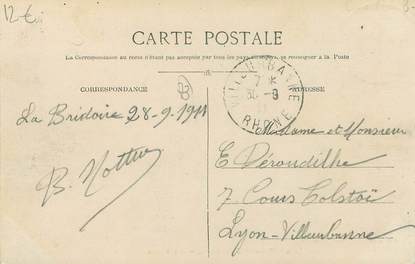 12 €
CARTE POSTALE
La Correspondance au recto n'étant pas acceptée par tous les pays étrangers, se renseigner à la Poste
CORRESPONDANCE
ADRESSE
VILLEURBANNE
7 *
30 - 9
RHONE
La Bridoire 28-9-1911
Madame et Monsieur
E Déroudilhe
7 Cours Tolstoï
Lyon-Villeurbanne
B.